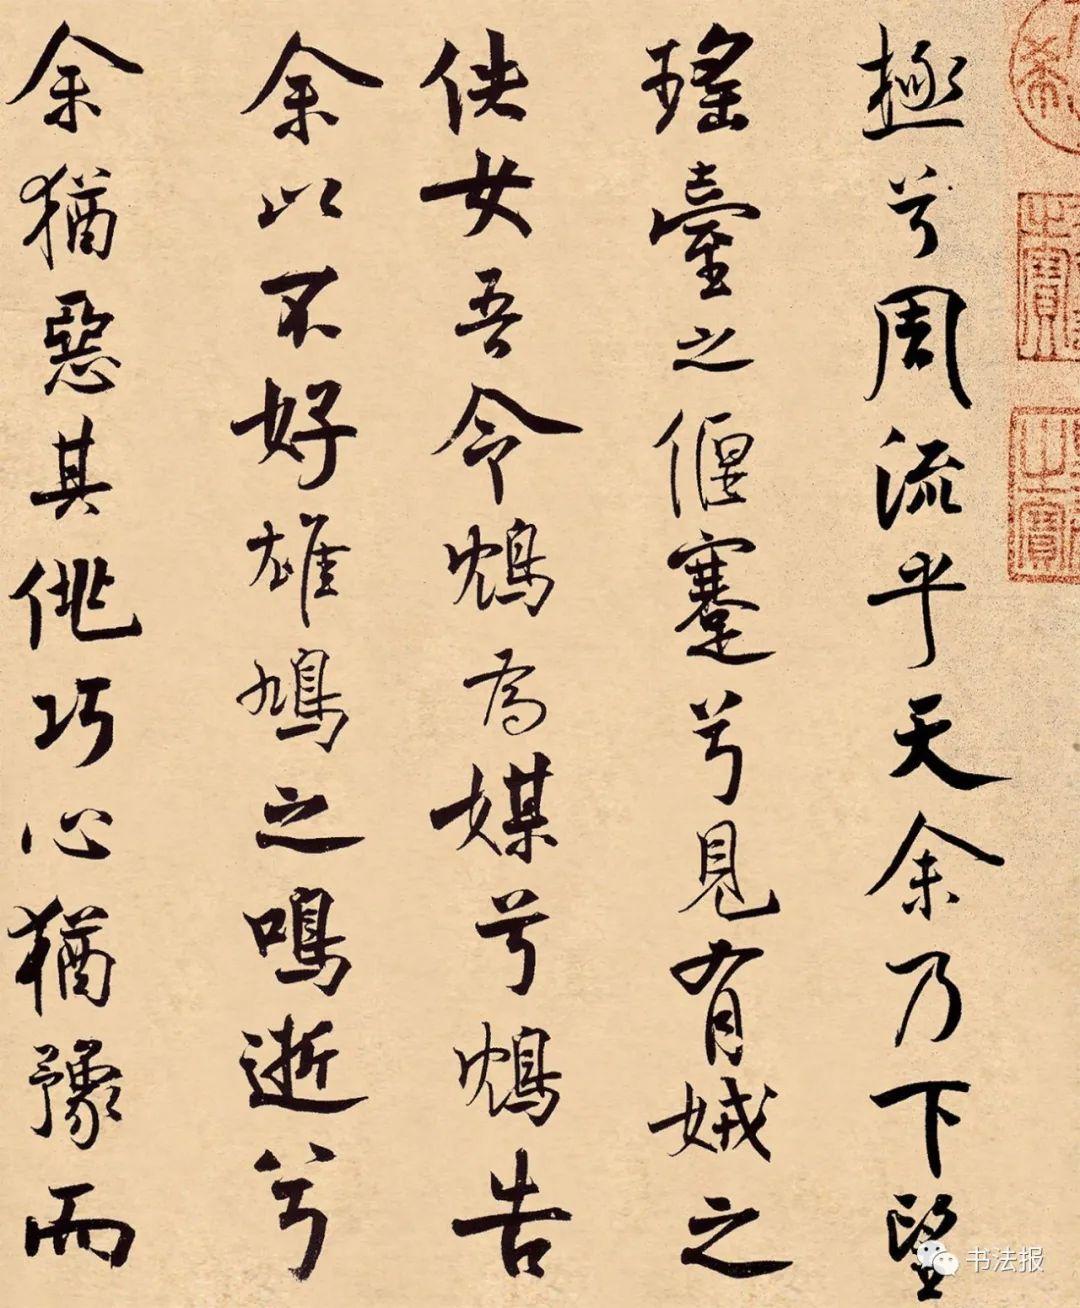 極兮周流乎天余乃下望
瑤臺之偃蹇兮見有娀之
佚女吾令鴆為媒兮鴆告
余以不好雄鳩之鳴逝兮
余猶惡其佻巧心猶豫而
希
之寶
之寶
书法报